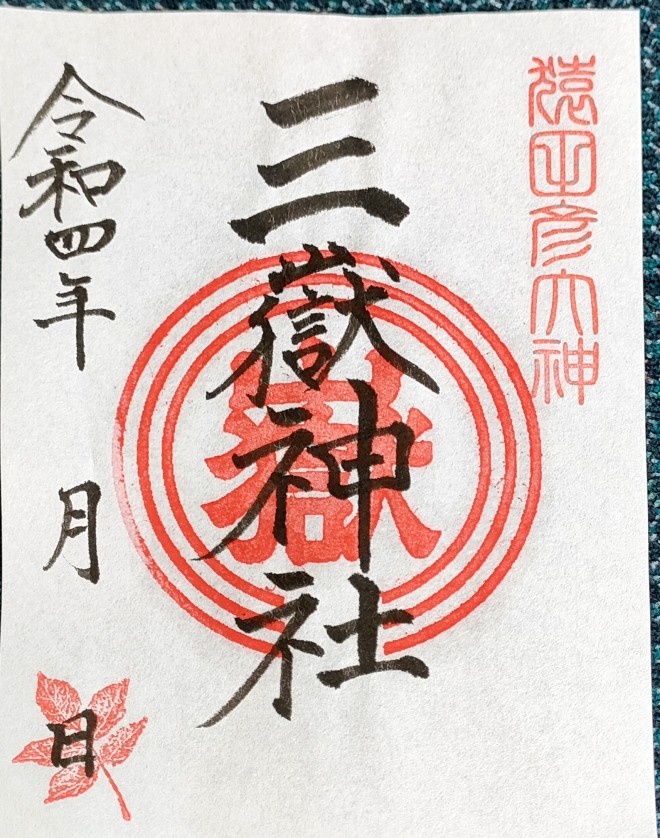 猿田彦大神
三嶽神社
嶽
令和四年 月 日